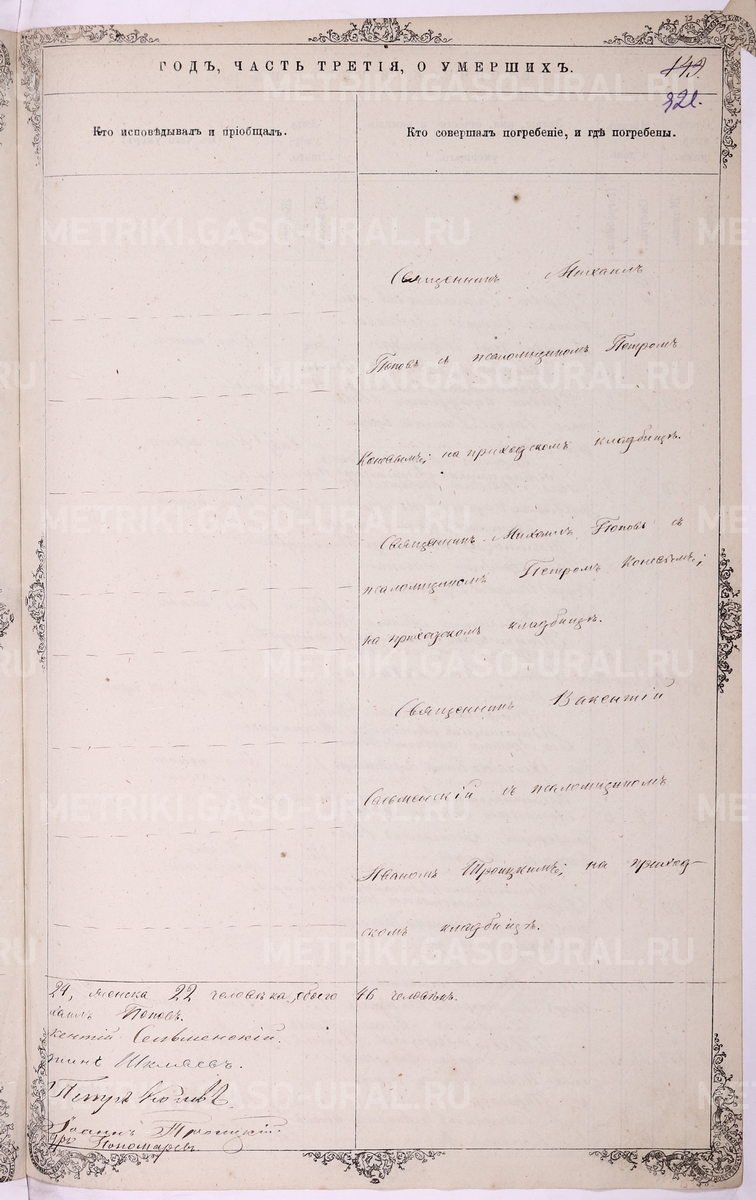 ГОДЪ, ЧАСТЬ ТРЕТІЯ, О УМЕРШИХЪ.
149.
321.
Кто исповѣдывалъ и пріобщалъ.
Кто совершалъ погребеніе, и гдѣ погребены.
Священникъ Михаилъ
Поповъ съ псаломщикомъ Петромъ
на приходскомъ кладбищѣ.
Священникъ Михаилъ Поповъ съ
псаломщикомъ Петромъ
на приходскомъ кладбищѣ.
Священникъ Викентій
Сельменскій съ псаломщикомъ
Иваномъ Троицкимъ; на приход-
скомъ кладбищѣ.
24, женска 22 человѣка, обоего 46 человѣкъ.
хаилъ Поповъ.
кентій Сельменскій.
Шкляевъ.
Петръ
Іоаннъ Троицкій
Пономаревъ.
METRIKI.GASO-URAL.RU